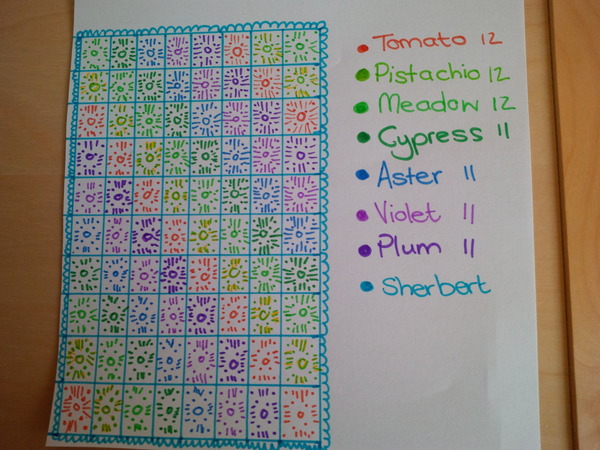 Tomato 12
Pistachio 12
Meadow 12
Cypress 11
Aster 11
Violet 11
Plum 11
Sherbert